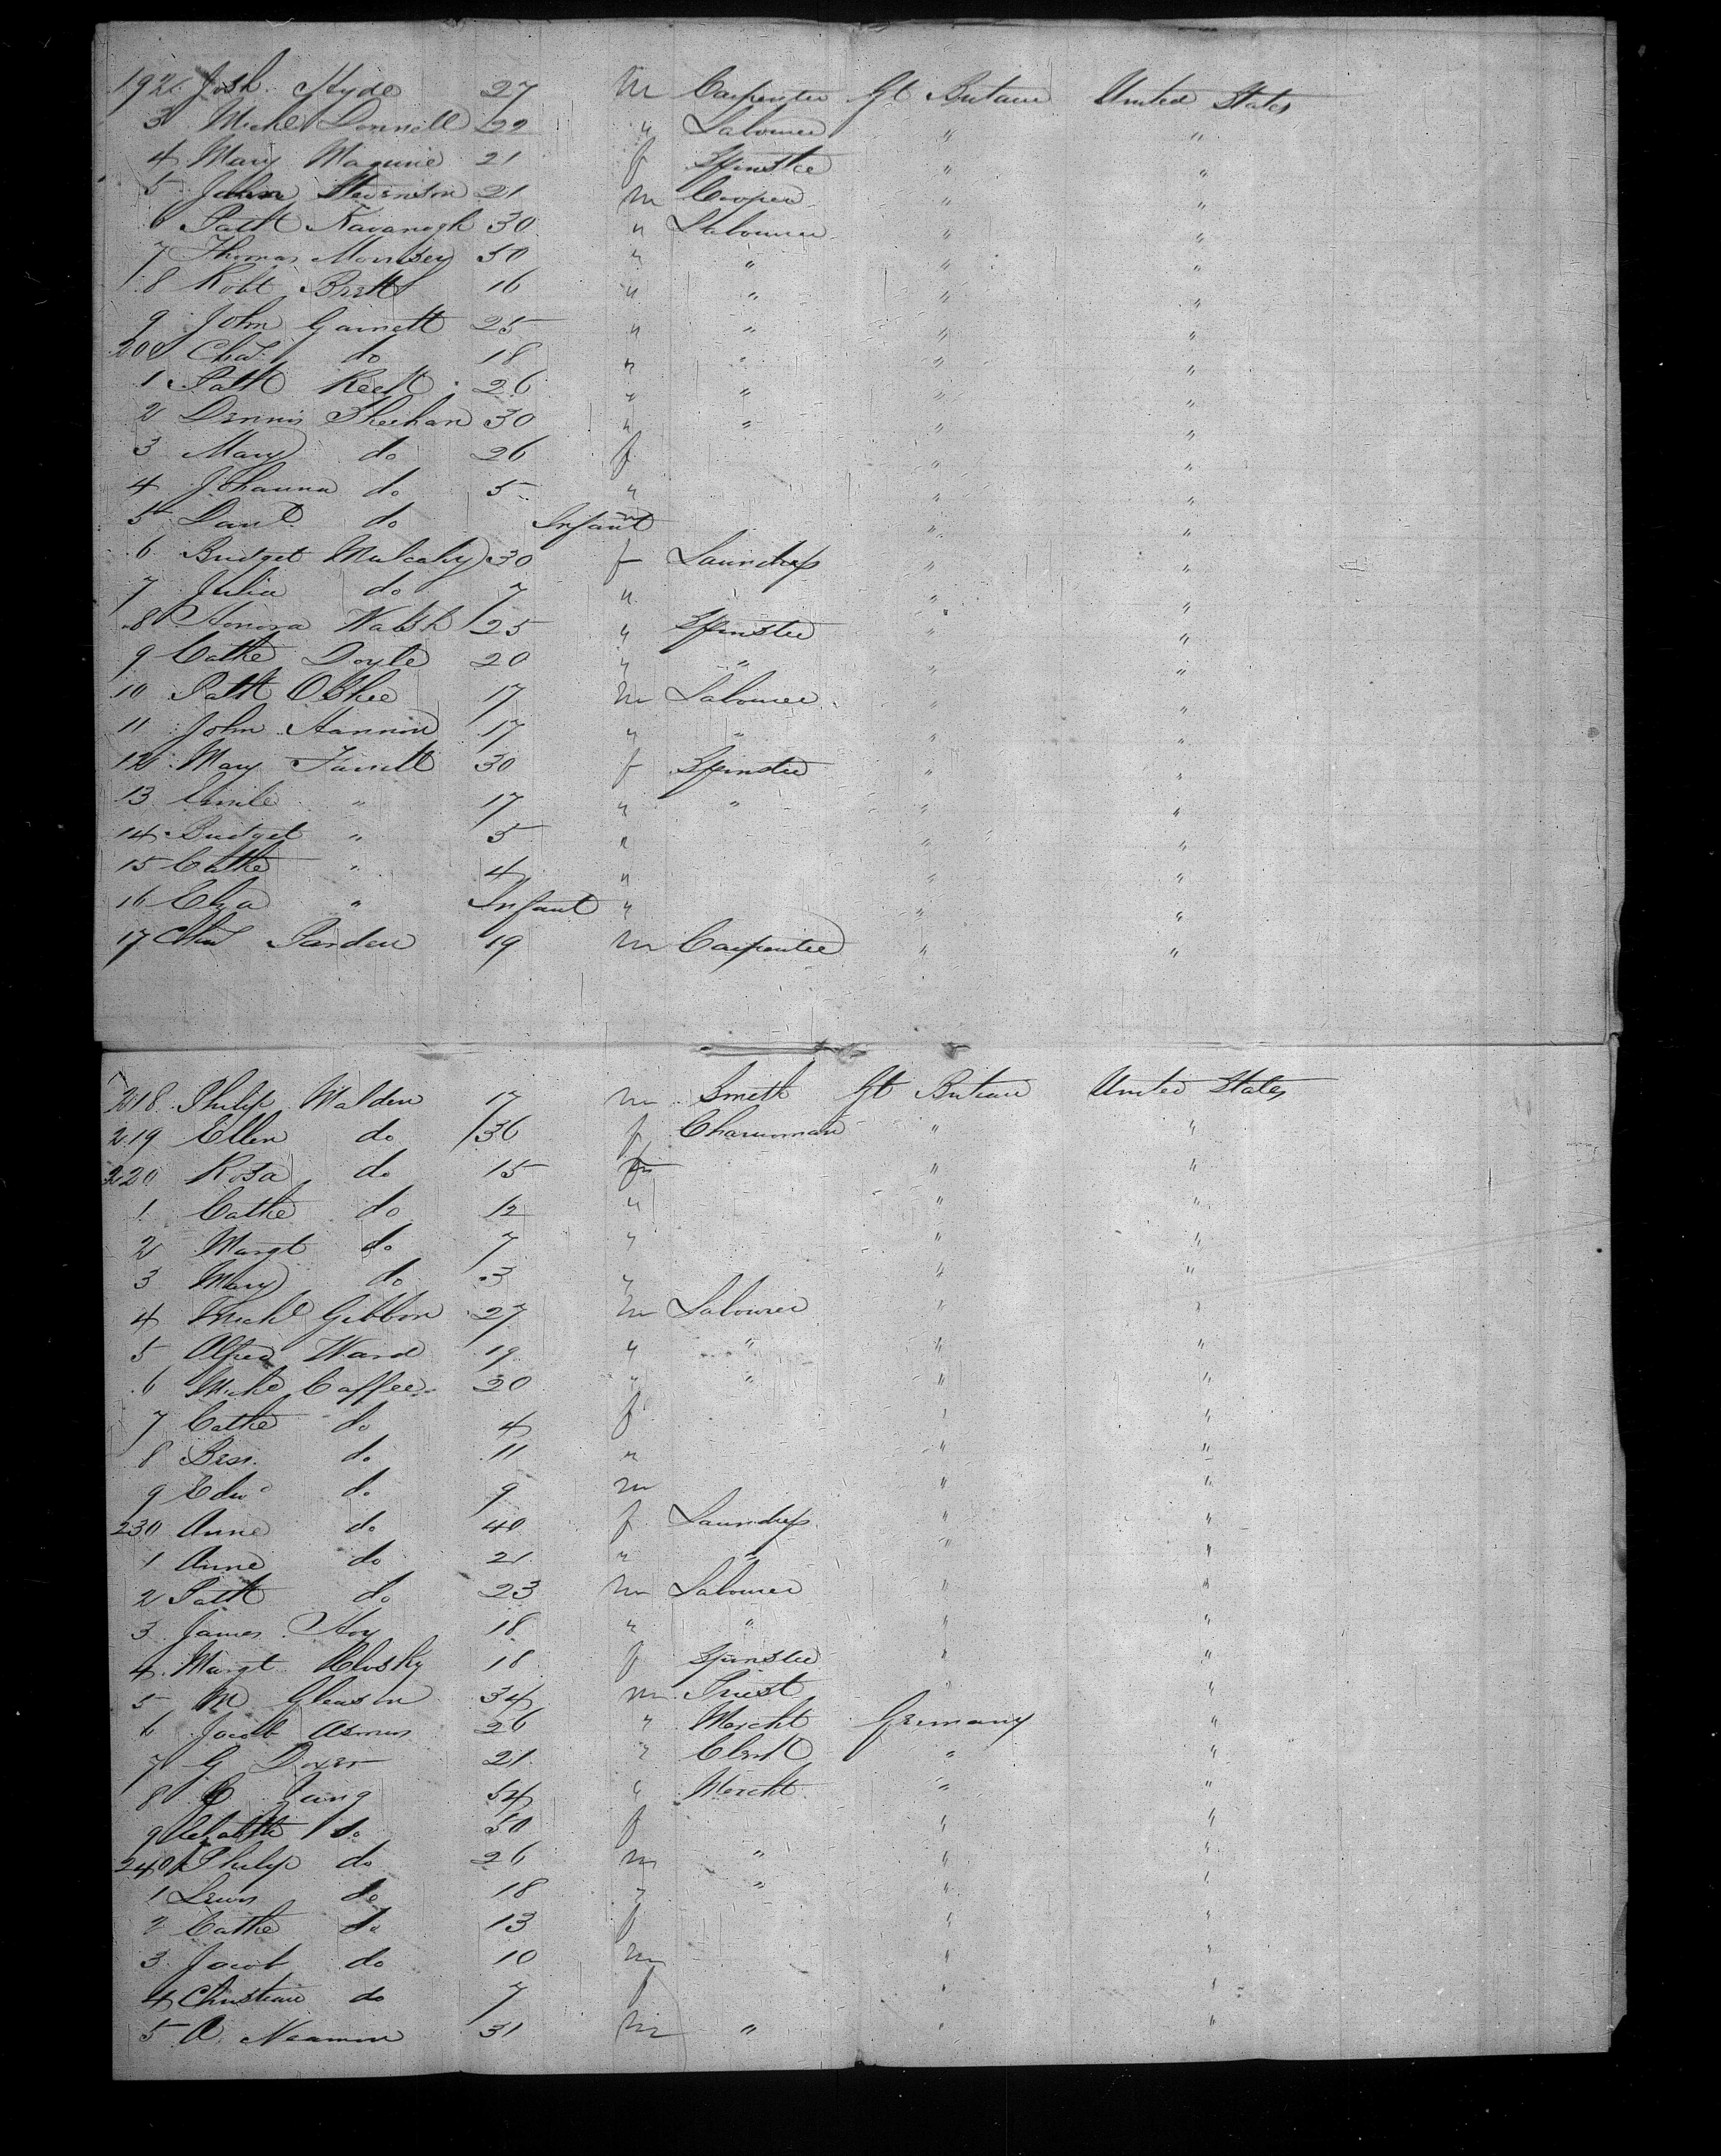 192 Josh Hyde 27 m Carpenter Gt Britain United States
3 Michl Donnell 22 " Labourer " "
4 Mary Maguire 21 f Spinster " "
5 John Stevenson 21 m Cooper " "
6 Patk Kavanagh 30 " Labourer " "
7 Thomas Morrisey 30 " " " "
8 Robt Brett 16 " " " "
9 John Garnett 25 " " " "
200 Chas do 18 " " " "
1 Patk 26 " " " "
2 Dennis Sheehan 30 " " " "
3 Mary do 26 f " "
4 Johanna do 5 " " "
5 Danl do Infant m " "
6 Bridget Mulcahy 30 f Laundress " "
7 Julia do 7 " " "
8 Honora Walsh 25 " Spinster " "
9 Cathe Doyle 20 " " " "
10 Patk OShee 17 m Labourer " "
11 John Hannon 17 " " " "
12 Mary Farrell 30 f Spinster " "
13 " 17 " " " "
14 Bridget " 5 " " "
15 Cathe " 4 " " "
16 Eliza " Infant " " "
17 Chas Parden 19 m Carpenter " "
218 Philip Walden 17 m Smith Gt Britain United States
219 Ellen do 36 f Charwoman " "
220 Rosa do 15 f " "
1 Cathe do 12 " " "
2 Margt do 7 " " "
3 Mary do 3 " " "
4 Michl Gibbon 27 m Labourer " "
5 Alfred Ward 19 " " " "
6 Michl Caffee 20 " " " "
7 Cathe do 4 f " "
8 Bess. do 11 " " "
9 Edwd do 9 m " "
230 Anne do 40 f Laundress " "
1 Anne do 21 " " " "
2 Patk do 23 m Labourer " "
3 James Hoy 18 " " " "
4 Margt Closky 18 f Spinster " "
5 M Gleason 34 m Priest " "
6 Jacob Asmus 26 " Mercht Germany "
7 G 21 " Clerk " "
8 Jung 54 " Mercht " "
9 Elizabth do 50 f " "
240 Philip do 26 m " " "
1 Lewis do 18 " " " "
2 Cathe do 13 f " "
3 Jacob do 10 m " "
4 Christiane do 7 f " "
5 A. Naamon 31 m " " "